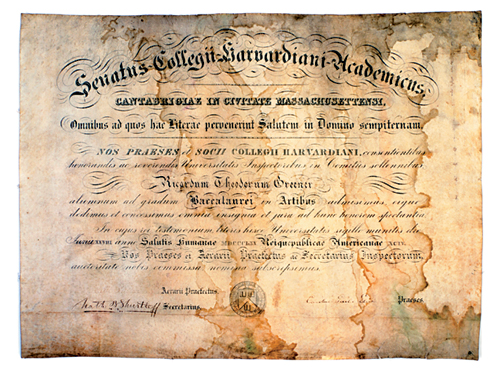 Senatus Collegii Harvardiani Academicus,
CANTABRIGIAE IN CIVITATE MASSACHUSETTENSI,
Omnibus ad quos hae Literae pervenerint Salutem in Domino sempiternam
NOS PRAESES et SOCII COLLEGII HARVARDIANI, consentientibus
honorandis ac reverendis Universitatis Inspectoribus in Comitiis sollennibus
Ricardum Theodorum Greener
alumnum ad gradum Baccalaurei in Artibus admisimus, eique
dedimus et concessimus omnia insignia et jura ad hunc honorem spectantia.
In cujus rei testimonium literis hisce Universitatis sigillo munitis die
anno Salutis Humanae Reique publicae Americanae
Nos Praeses et Aerarii Praefectus ac Secretarius Inspectorum,
auctoritate nobis commissa nomina subscripsimus.
Aerarii Praefectus.
Secretarius. Praeses.